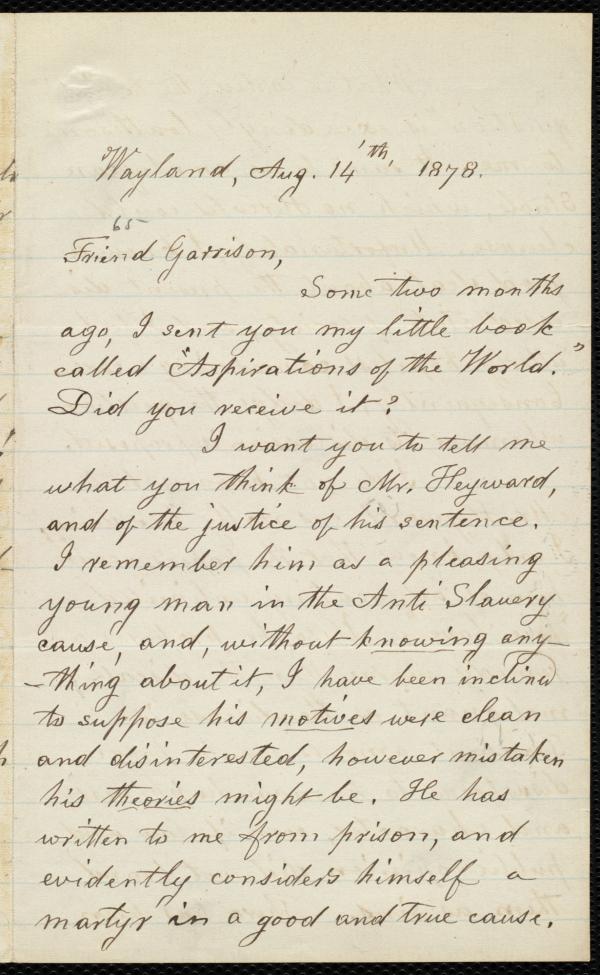 Wayland, Aug. 14'th, 1878.
65
Friend Garrison,
Some two months
ago, I sent you my little book
called "Aspirations of the World."
Did you receive it?
I want you to tell me
what you think of Mr. Heyward,
and of the justice of his sentence.
I remember him as a pleasing
young man in the Anti Slavery
cause, and, without knowing any-
-thing about it, I have been inclined
to suppose his motives were clean
and disinterested, however mistaken
his theories might be. He has
written to me from prison, and
evidently considers himself a
martyr in a good and true cause.